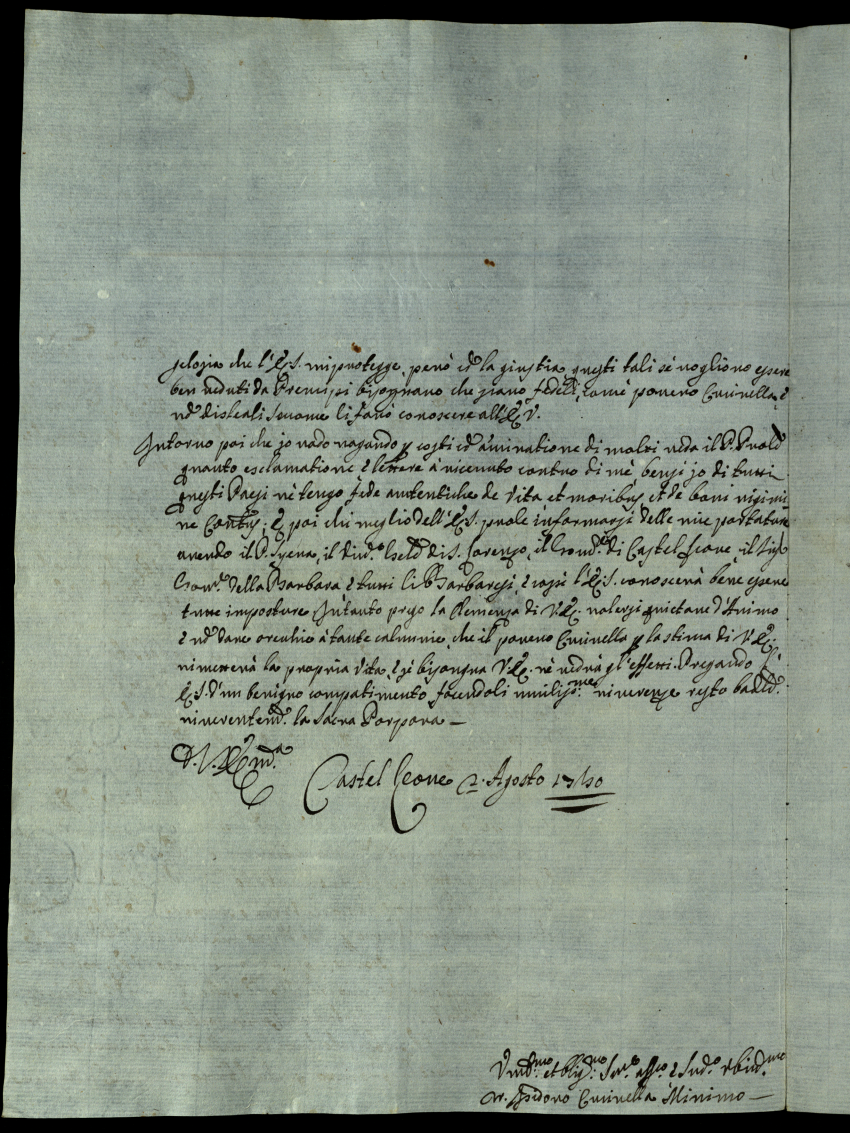 gelosia che l'E.S. mi protegge, però cō la giustizia questi tali se vogliono essere
ben veduti da Prencipi bisognano che siano fedeli, come povero Crivella, e
nō disleali secome li farò conoscere all'E.V.
Intorno poi che jo vado vagando p costi cō amiratione di molti
quanto esclamatione e lettere à ricevuto contro di mè, bensi jo di tutti
questi Paesi nè tengo fede autentiche de Vita et moribus et de boni
E poi chi meglio dell'E.S. puole informarsi delle mie portature
avendo il P. il di S. Lorenzo, il di Castel Leone, il
Gov.re della Barbara e tutti li Barbaresi, e cosi l'E.S. conoscerà bene essere
tutte imposture. Intanto prego la Clemenza di V.E. volersi quietare d'Animo
e nō dare orechie à tante calunnie, che il povero Crivella p la stima di V.E.
rimetterà la propria vita, e se bisogna V.E. nè vedrà gl'effetti. Pregando l'
E.S. d'un benigno compatimento, facendoli umiliss.me riverenze resto bacād.
riverentem.te la Sacra Porpora —
D. V. Em.a
Castel Leone 2. Agosto 1740
Umil.mo et oblig.mo Ser.e aff.o e
Fr. Isidoro Crivella Minimo —